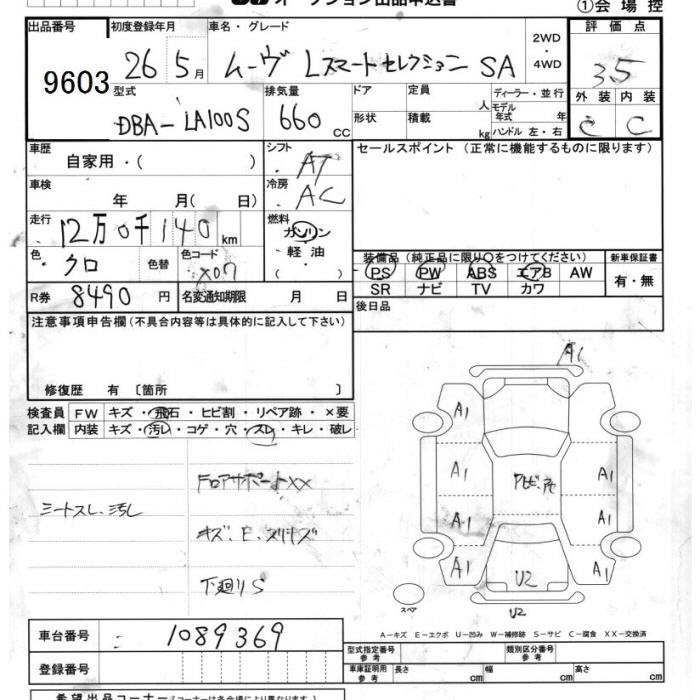 オークション出品申込書 ①会場控
出品番号 初度登録年月 車名・グレード 2WD ・ 4WD 評価点
9603 26年 5月 ムーヴ Lスマートセレクション SA 3.5
型式 排気量 ドア 定員 人 ディーラー・並行 外装 内装
DBA-LA100S 660 cc 形状 積載 kg モデル年式 年 ハンドル 左・右 C C
車歴 自家用・( ) シフト AT セールスポイント (正常に機能するものに限ります)
車検 年 月( 日) 冷房 AC
走行 12万0千140km 燃料 ガソリン・軽油・( )
色 クロ 色替 色コード X07 装備品(純正品に限り○をつけてください) 新車保証書
PS PW ABS エアB AW 有・無
R券 8490円 名変通知期限 月 日 SR ナビ TV カワ
注意事項申告欄(不具合内容等は具体的に記入して下さい) 後日品
修復歴 有 〔箇所 〕
検査員 FW キズ・飛石・ヒビ割・リペア跡・×要
記入欄 内装 キズ・汚レ・コゲ・穴・スレ・キレ・破レ
A1
A1 A1
フロアサポートXX
A1 A1
シートスレ、汚レ
キズ、E、スリキズ
A1 A1
下廻りS
A1 U2 A1
スペア U2
A-キズ E-エクボ U-凹み W-補修跡 S-サビ C-腐食 XX-交換済
車台番号 1089369
型式指定番号 参考 類別区分番号 参考
登録番号 車庫証明用 参考 長さ cm 幅 cm 高さ cm
希望出品コーナー